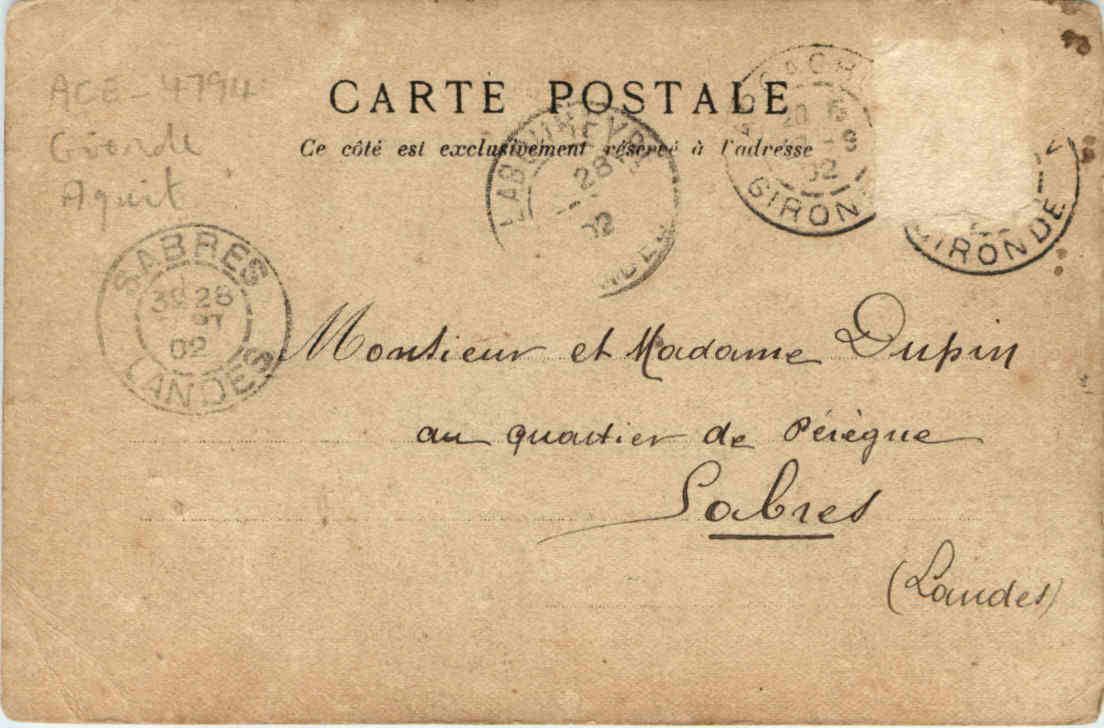 ACE-4794
Gironde
Aquit
CARTE POSTALE
Ce côté est exclusivement réservé à l'adresse
LABOUHEYRE
28
02
CACH
20
02
GIRON
GIRONDE
SABRES
28
02
LANDES
Monsieur et Madame Dupin
au quartier de Pérègne
Sabres
(Landes)